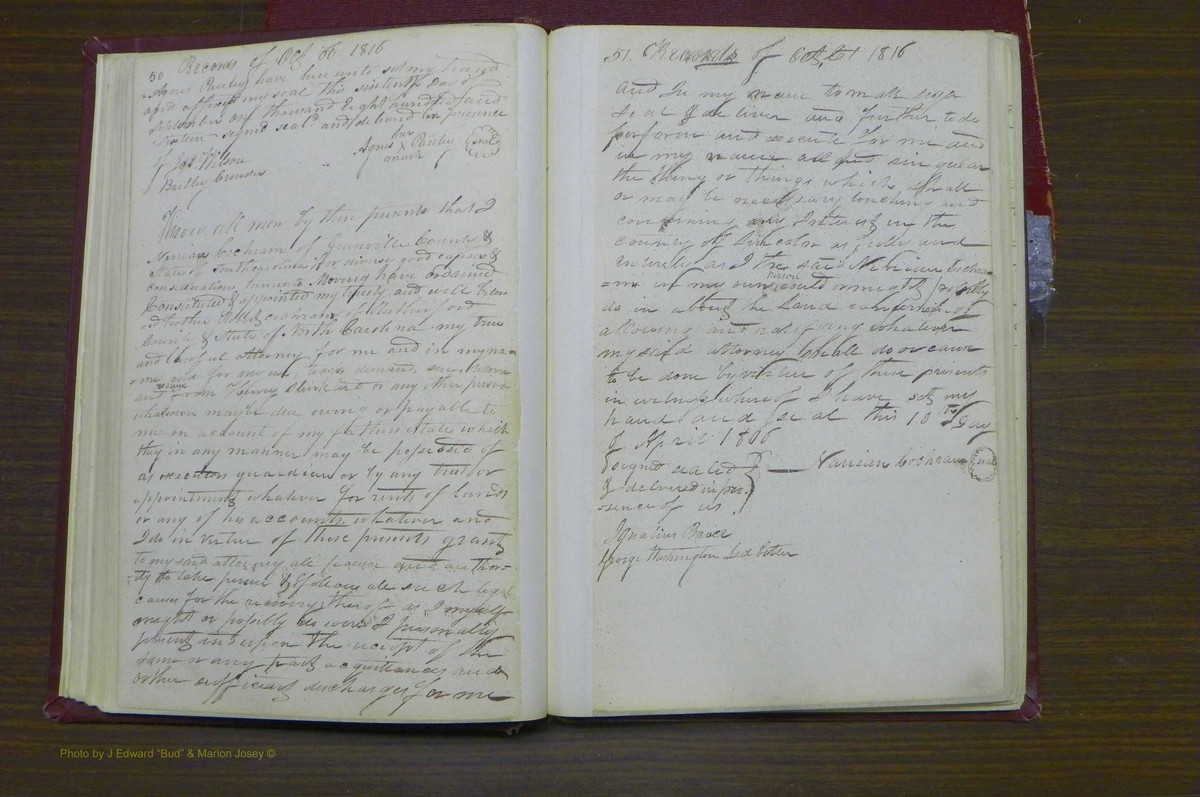 50 Records of Oct 1816
Agnes Pauley have here unto set my hand
and affixed my seal this sixteenth Day of
September one thousand Eight hundred and
sixteen signed seal.d and delivered in presence
of Jas Wilson
Agnes her X mark Pauley seal
Bartley Crouser
Know all men by these presents that I
Ninian Cochram of Granville County &
State of North carolina for divers good causes &
considerations hereunto Moving have ordained
Constituted & appointed my trusty and well belov
=ed brother cochram of Rutherford
County & State of North Carolina my true
and lawful attorney for me and in my na
=me and for my use to ask demand, sue Recover
and receive from Henry or any other person
whatsoever may be due owing or payable to
me on account of my fathers Estate which
they in any manner may be possessed of
as executors guardian or by any trust or
appointment whatever for rents of lands
or any of his accounts whatever and
I do in virtue of these presents grant
to my said attorney all power and author=
ity to take persue & follow all such legal
causes for the recovery thereof as I myself
might or possibly as were I personally
present and upon the receipt of the
same or any part acquittances and
other sufficient discharges for me
51. Records of Oct 1816
and in my name to make sign
seal & deliver and further to do
perform and execute for me and
in my name all and singular
the thing or things which shall
or may be necessary touching and
concerning my Interest in the
county of Lincoln as fully and
entirely as I the said Ninian Cochra
=m in my own person could or might possibly
do in about the Land confirming
allowing and ratifying whatever
my said attorney shall do or cause
to be done by virtue of these presents
in witness whereof I have set my
hand and seal this 10th Day
of April 1806
signed sealed } — Ninian Cochram seal
& delivered in pre
=sence of us.
Ignatius Bruce
George Washington Ledbetter
Photo by J Edward "Bud" & Marion Josey ©